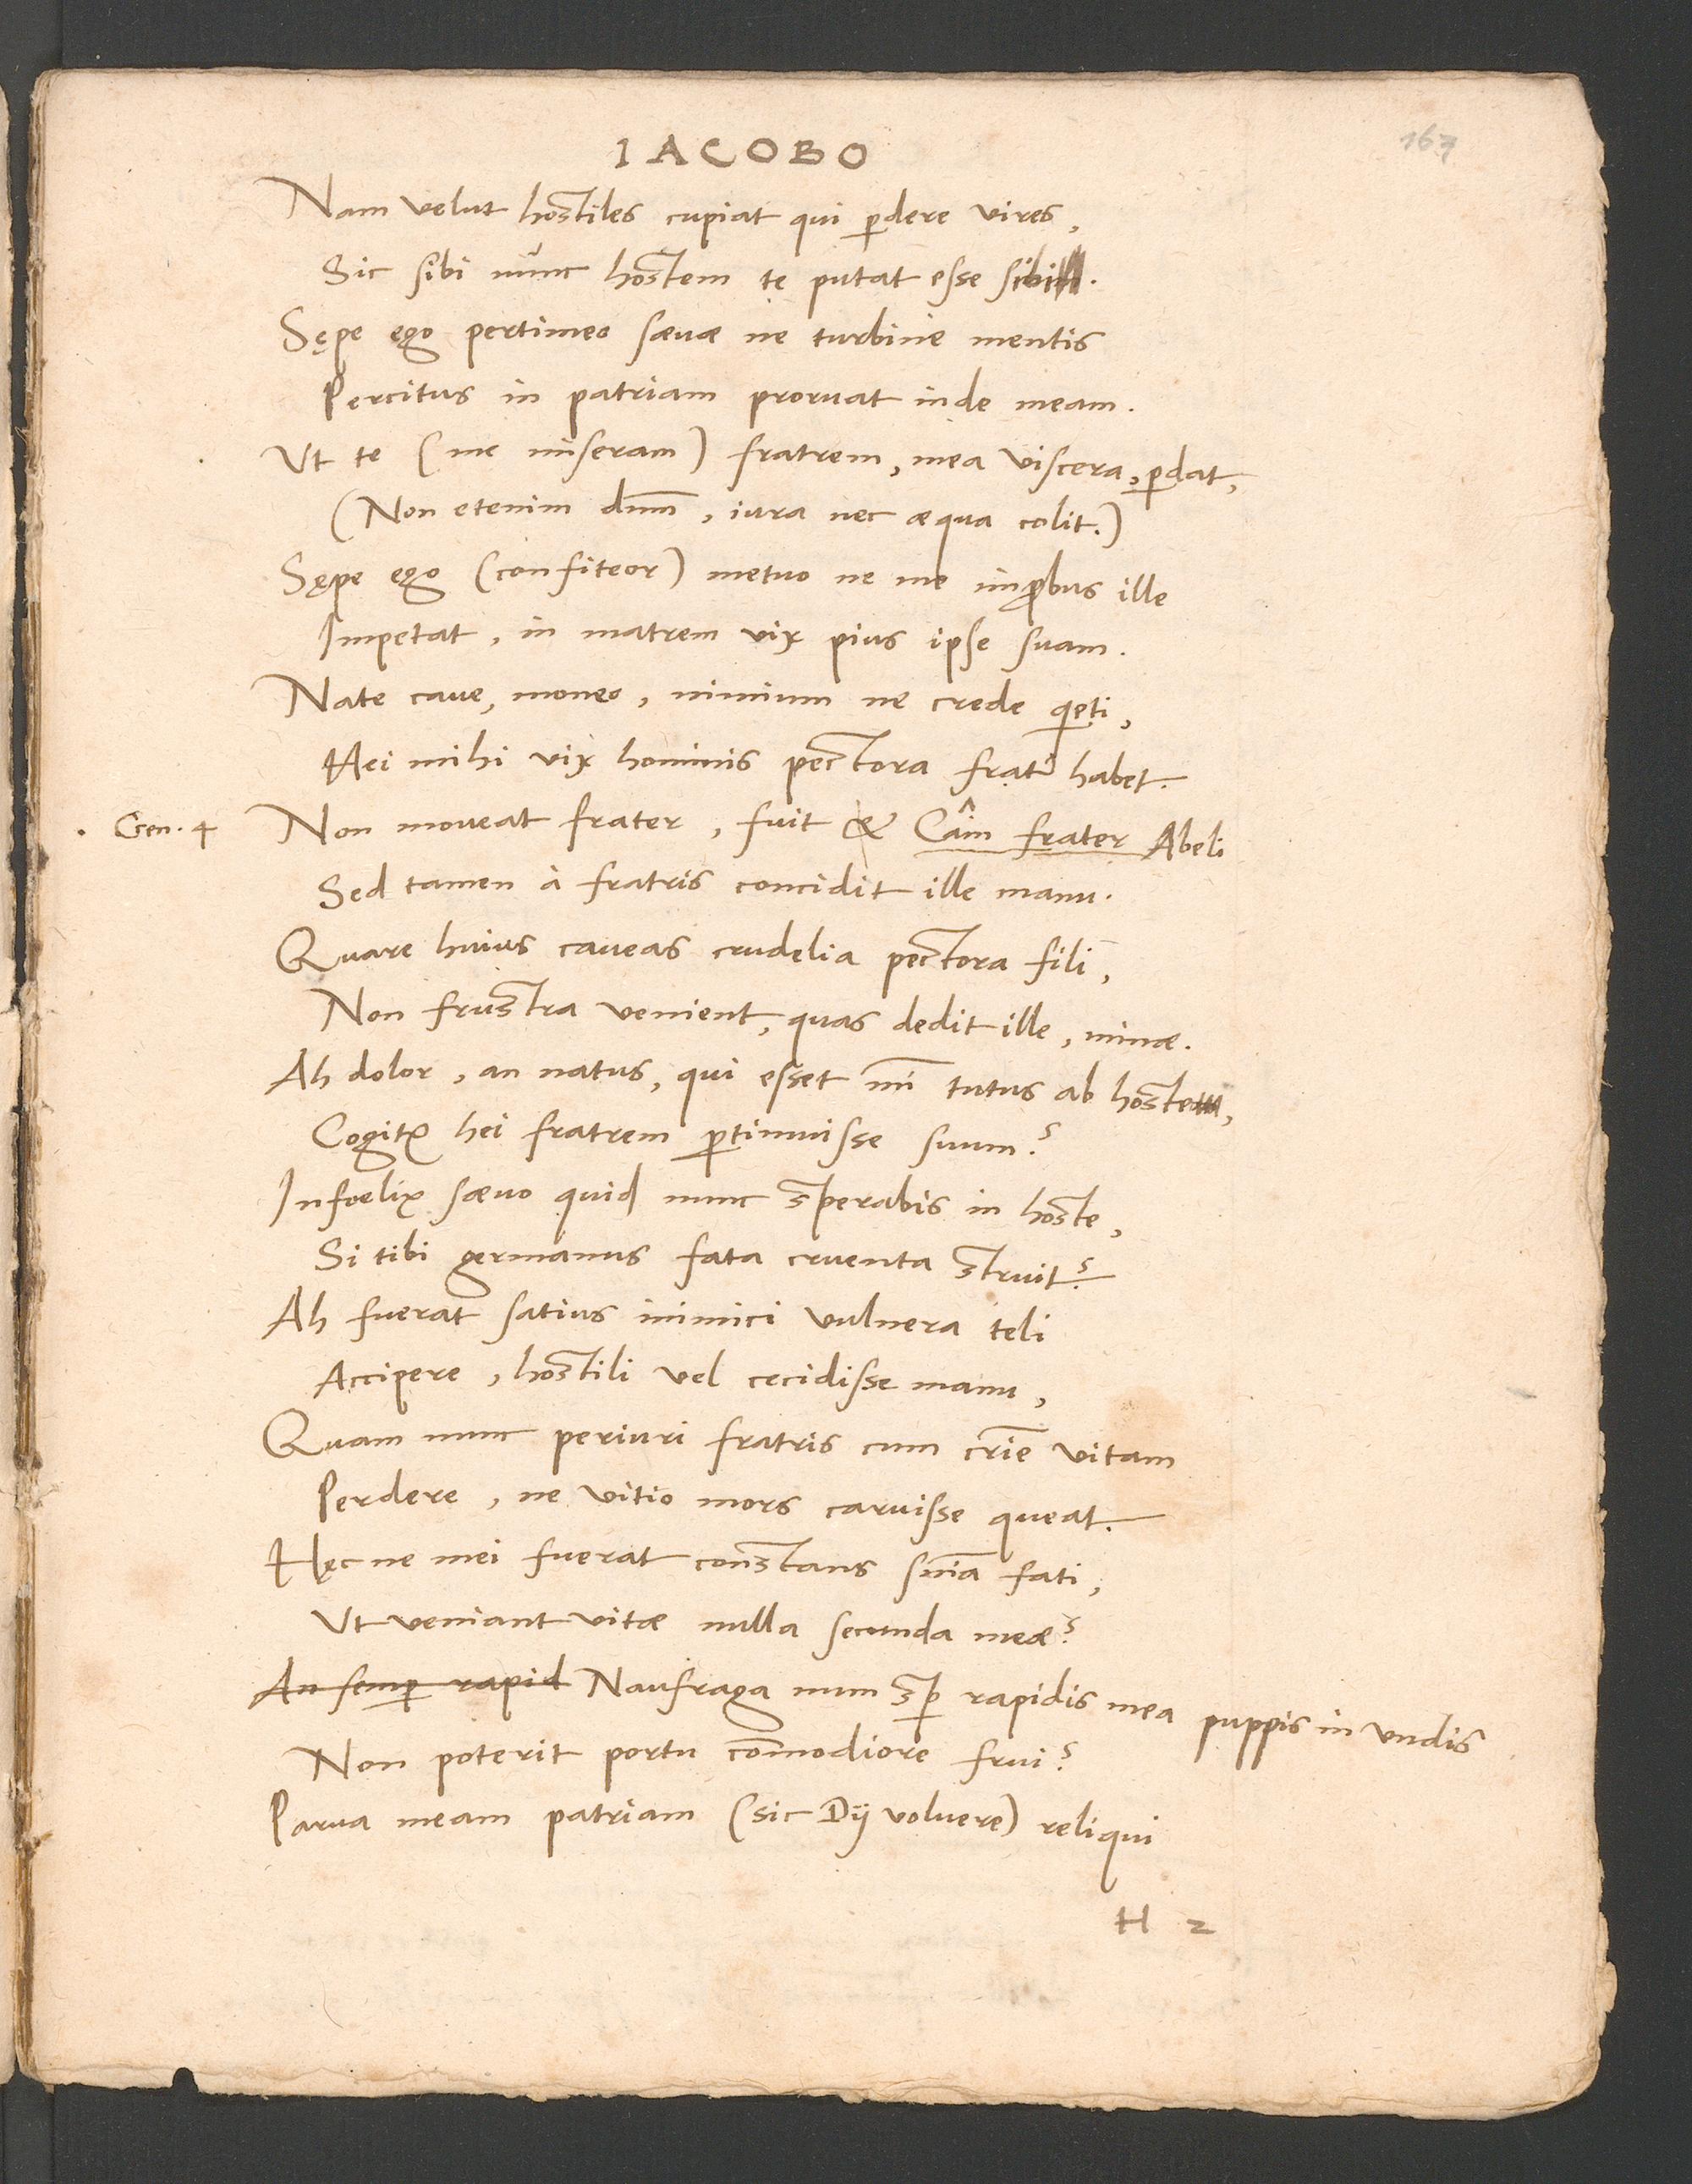 IACOBO
167
Nam velut hostiles cupiat qui ꝑdere vires,
Sic sibi nunc hostem te putat esse sibi.
Sępe ego pertimeo sævæ ne turbine mentis
Percitus in patriam proruat inde meam.
Ut te (me miseram) fratrem, mea viscera, ꝑdat,
(Non etenim dnm̄, iura nec æqua colit.)
Sępe ego (confiteor) metuo ne me imꝓbus ille
Impetat, in matrem vix pius ipse suam.
Nate cave, moneo, nimium ne crede
Hei mihi vix hominis pectora frater habet.
Gen. 4
Non moveat frater, fuit & Câin frater Abeli
Sed tamen à fratris concidit ille manu.
Quare huius caveas crudelia pectora fili,
Non frustra venient, quas dedit ille, minæ.
Ah dolor, an natus, qui esset mī tutus ab hoste,
Cogitꝛ hei fratrem ꝑtimuisse suum?
Infoelix sævo quid nunc sperabis in hoste,
Si tibi germanus fata cruenta struit?
Ah fuerat satius inimici vulnera teli
Accipere, hostili vel cecidisse manu,
Quam nunc periuri fratris cum crīe vitam
Perdere, ne vitio mors caruisse queat.
Hęc ne mei fuerat constans snīa fati,
Ut veniant vitæ nulla secunda meæ?
An semꝑ rapid Naufraga num sꝑ rapidis mea puppis in undis
Non poterit portu com̄odiore frui?
Parva meam patriam (sic Dij voluere) reliqui
H 2